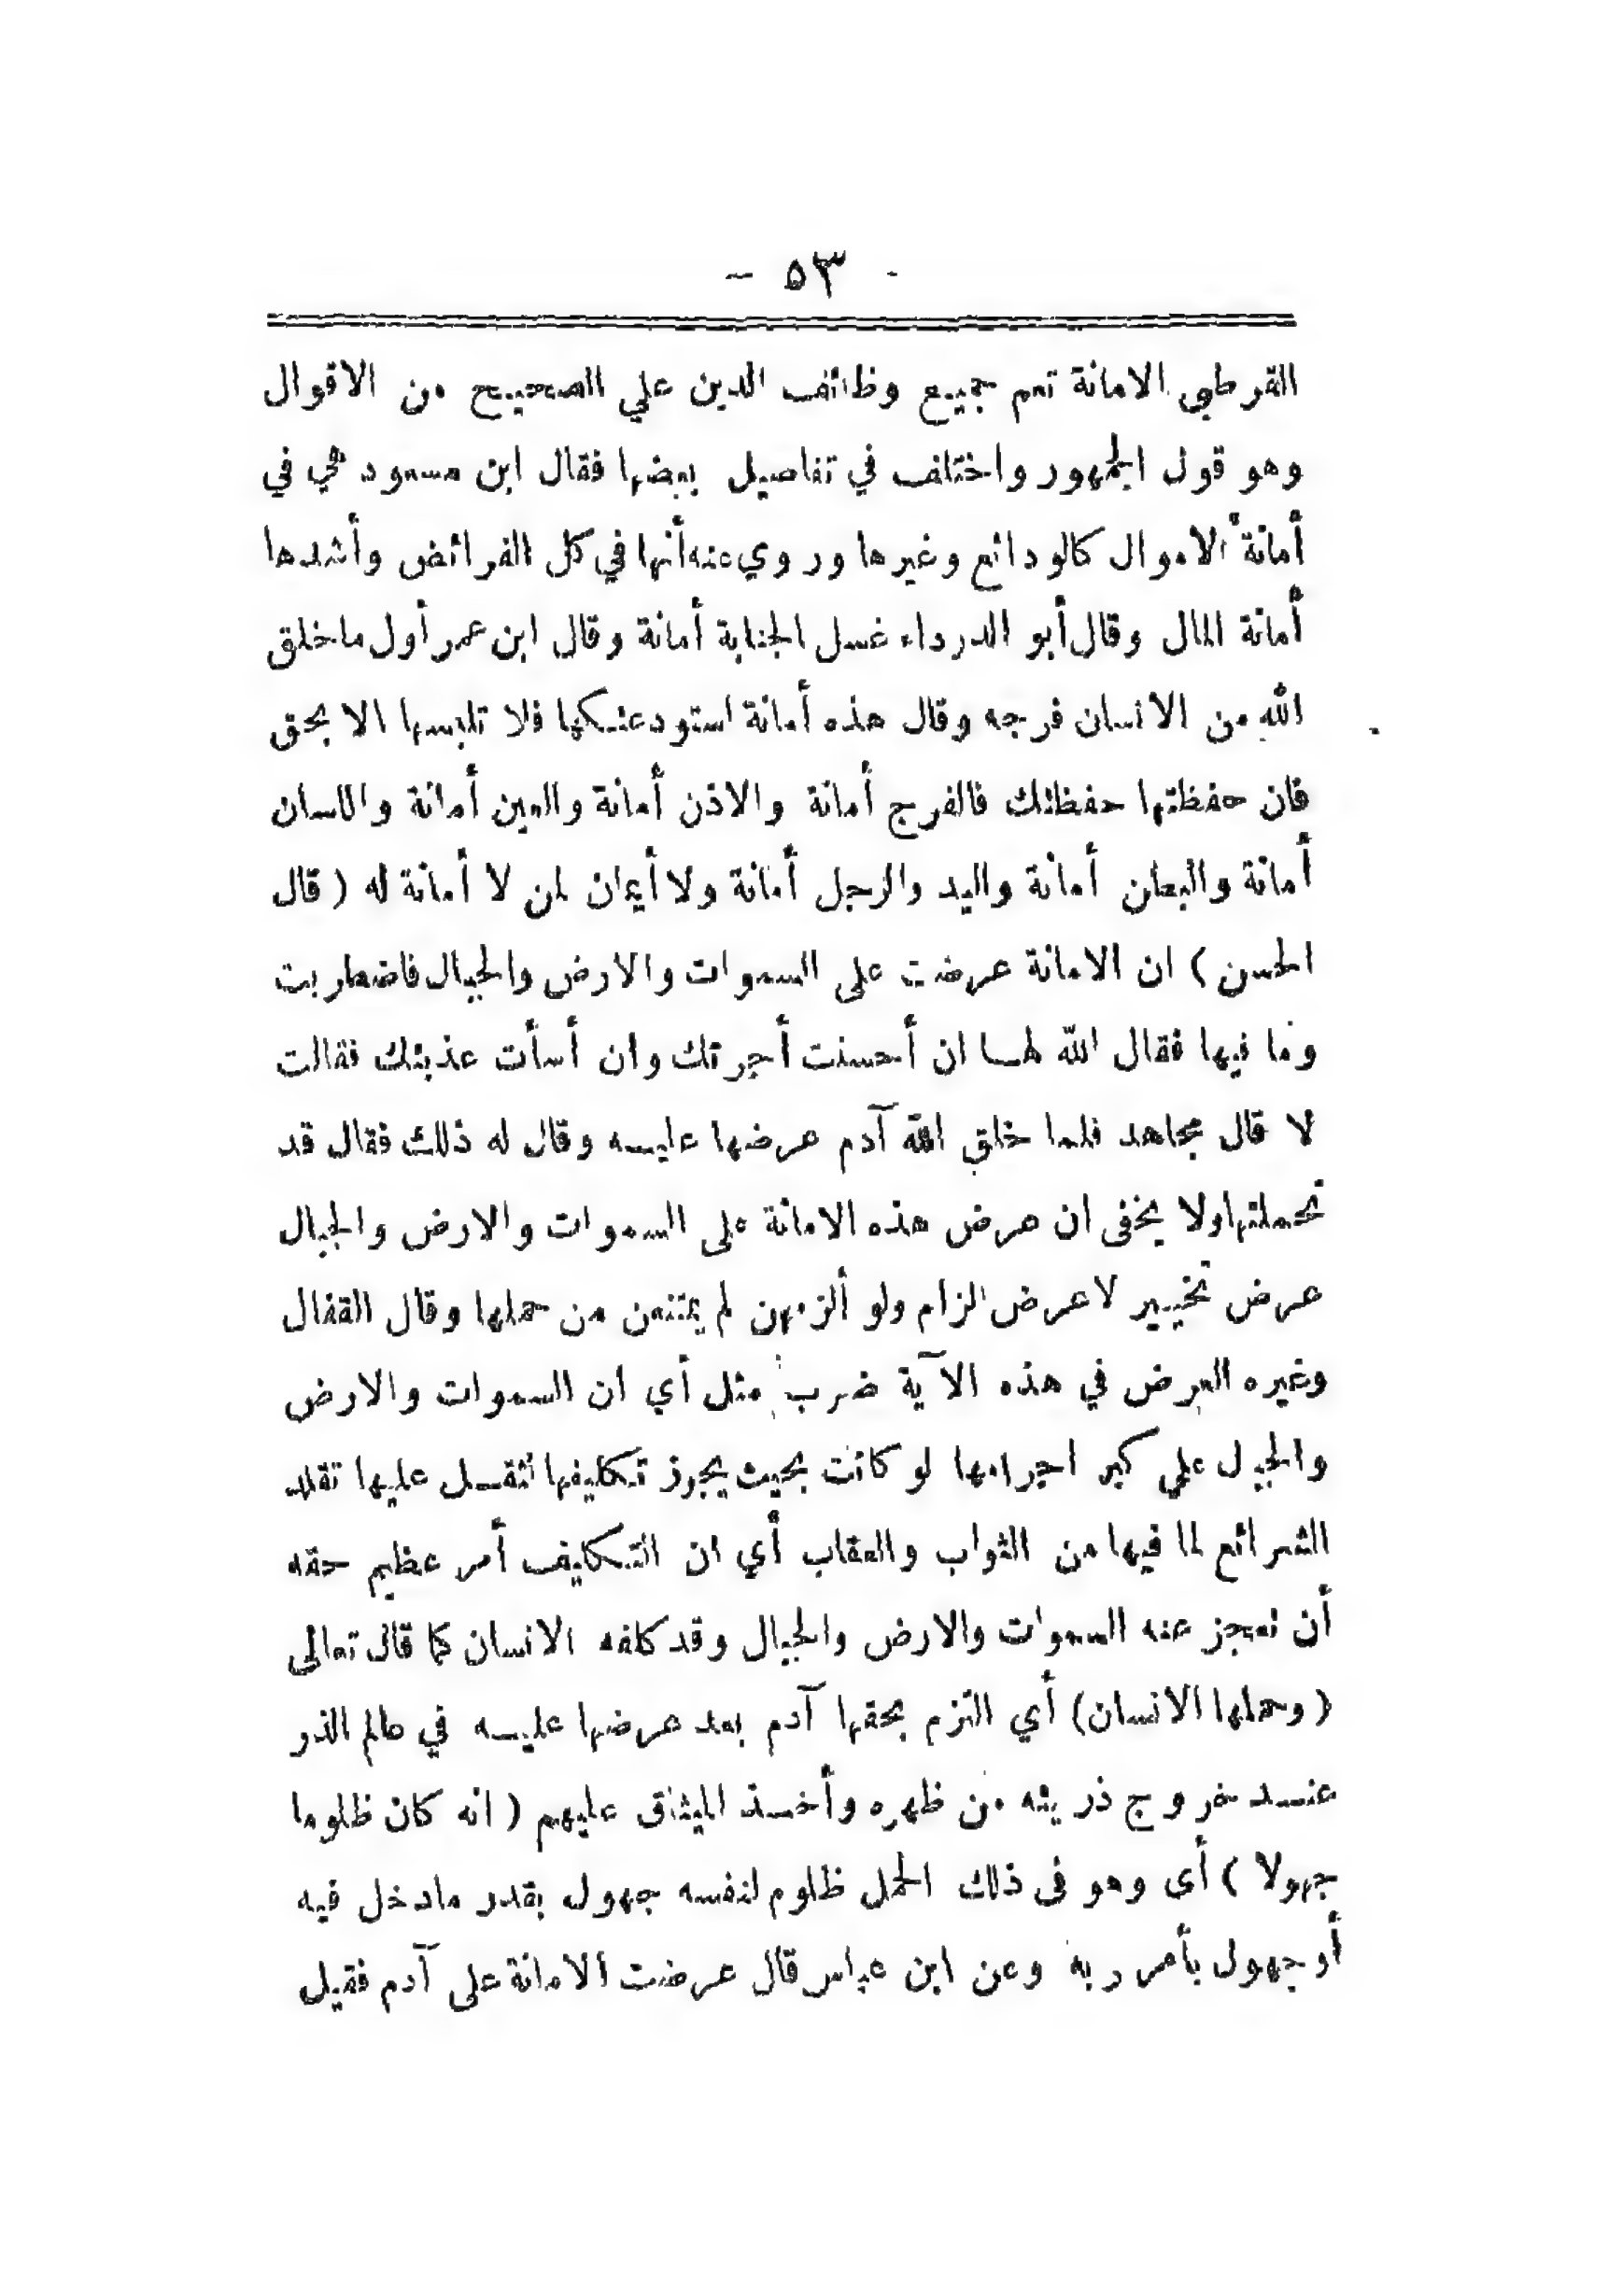 - ٥٣ -
القرطبي الامانة تعم جميع وظائف الدين علي الصحيح من الاقوال
وهو قول الجمهور واختلف في تفاصيل بعضها فقال ابن مسعود هي في
أمانة الاموال كالودائع وغيرها وروي عنه أنها في كل الفرائض وأشدها
أمانة المال وقال أبو الدرداء غسل الجنابة أمانة وقال ابن عمر أول ما خلق
الله من الانسان فرجه وقال هذه أمانة استودعتكها فلا تلبسها الا بحق
فان حفظتها حفظتك فالفرج أمانة والاذن أمانة والعين أمانة واللسان
أمانة والبطن أمانة واليد والرجل أمانة ولا أيمان لمن لا أمانة له ( قال
الحسن ) ان الامانة عرضت على السموات والارض والجبال فاضطربت
وما فيها فقال الله لها ان أحسنت أجرتك وان أسأت عذبتك فقالت
لا قال مجاهد فلما خلق الله آدم عرضها عليه وقال له ذلك فقال قد
تحملتها ولا يخفى ان عرض هذه الامانة على السموات والارض والجبال
عرض تخيير لا عرض الزام ولو ألزمهن لم يمتنعن من حملها وقال القفال
وغيره العرض في هذه الآية ضرب مثل أي ان السموات والارض
والجبال علي كبر اجرامها لو كانت بحيث يجوز تكليفها لثقل عليها تقلد
الشرائع لما فيها من الثواب والعقاب أي ان التكليف أمر عظيم حقه
أن تعجز عنه السموات والارض والجبال وقد كلفه الانسان كما قال تعالى
( وحملها الانسان) أي التزم بحقها آدم بعد عرضها عليه في عالم الذر
عند خروج ذريته من ظهره وأخذ الميثاق عليهم ( انه كان ظلوما
جهولا ) أى وهو فى ذلك الحمل ظلوم لنفسه جهول بقدر ما دخل فيه
أو جهول بأمر ربه وعن ابن عباس قال عرضت الامانة على آدم فقيل